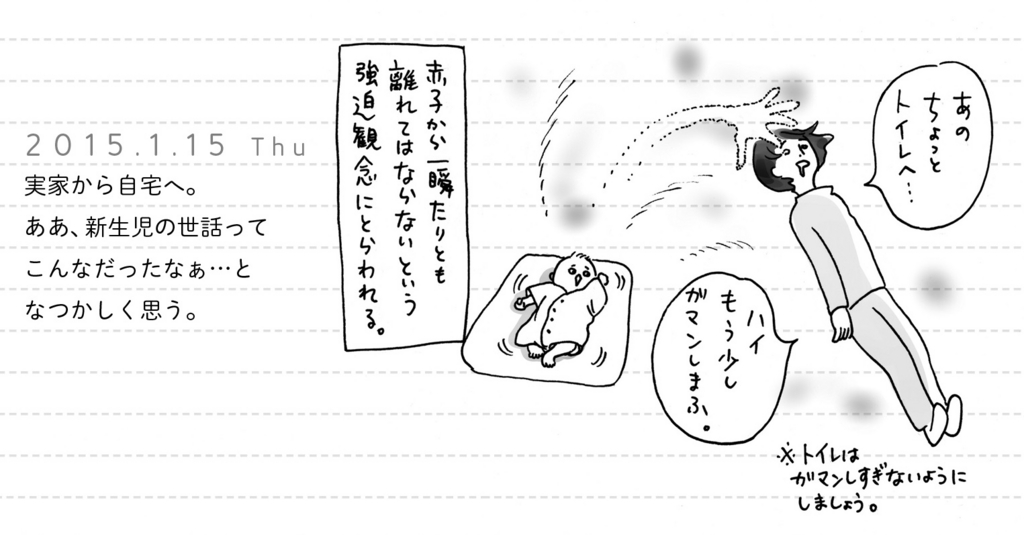 2015.1.15 Thu
実家から自宅へ。
ああ、新生児の世話って
こんなだったなぁ…と
なつかしく思う。
赤子から一瞬たりとも
離れてはならないという
強迫観念にとらわれる。
あの
ちょっと
トイレへ…
ハイ
もう少し
ガマンしまふ。
※トイレは
ガマンしすぎないように
しましょう。